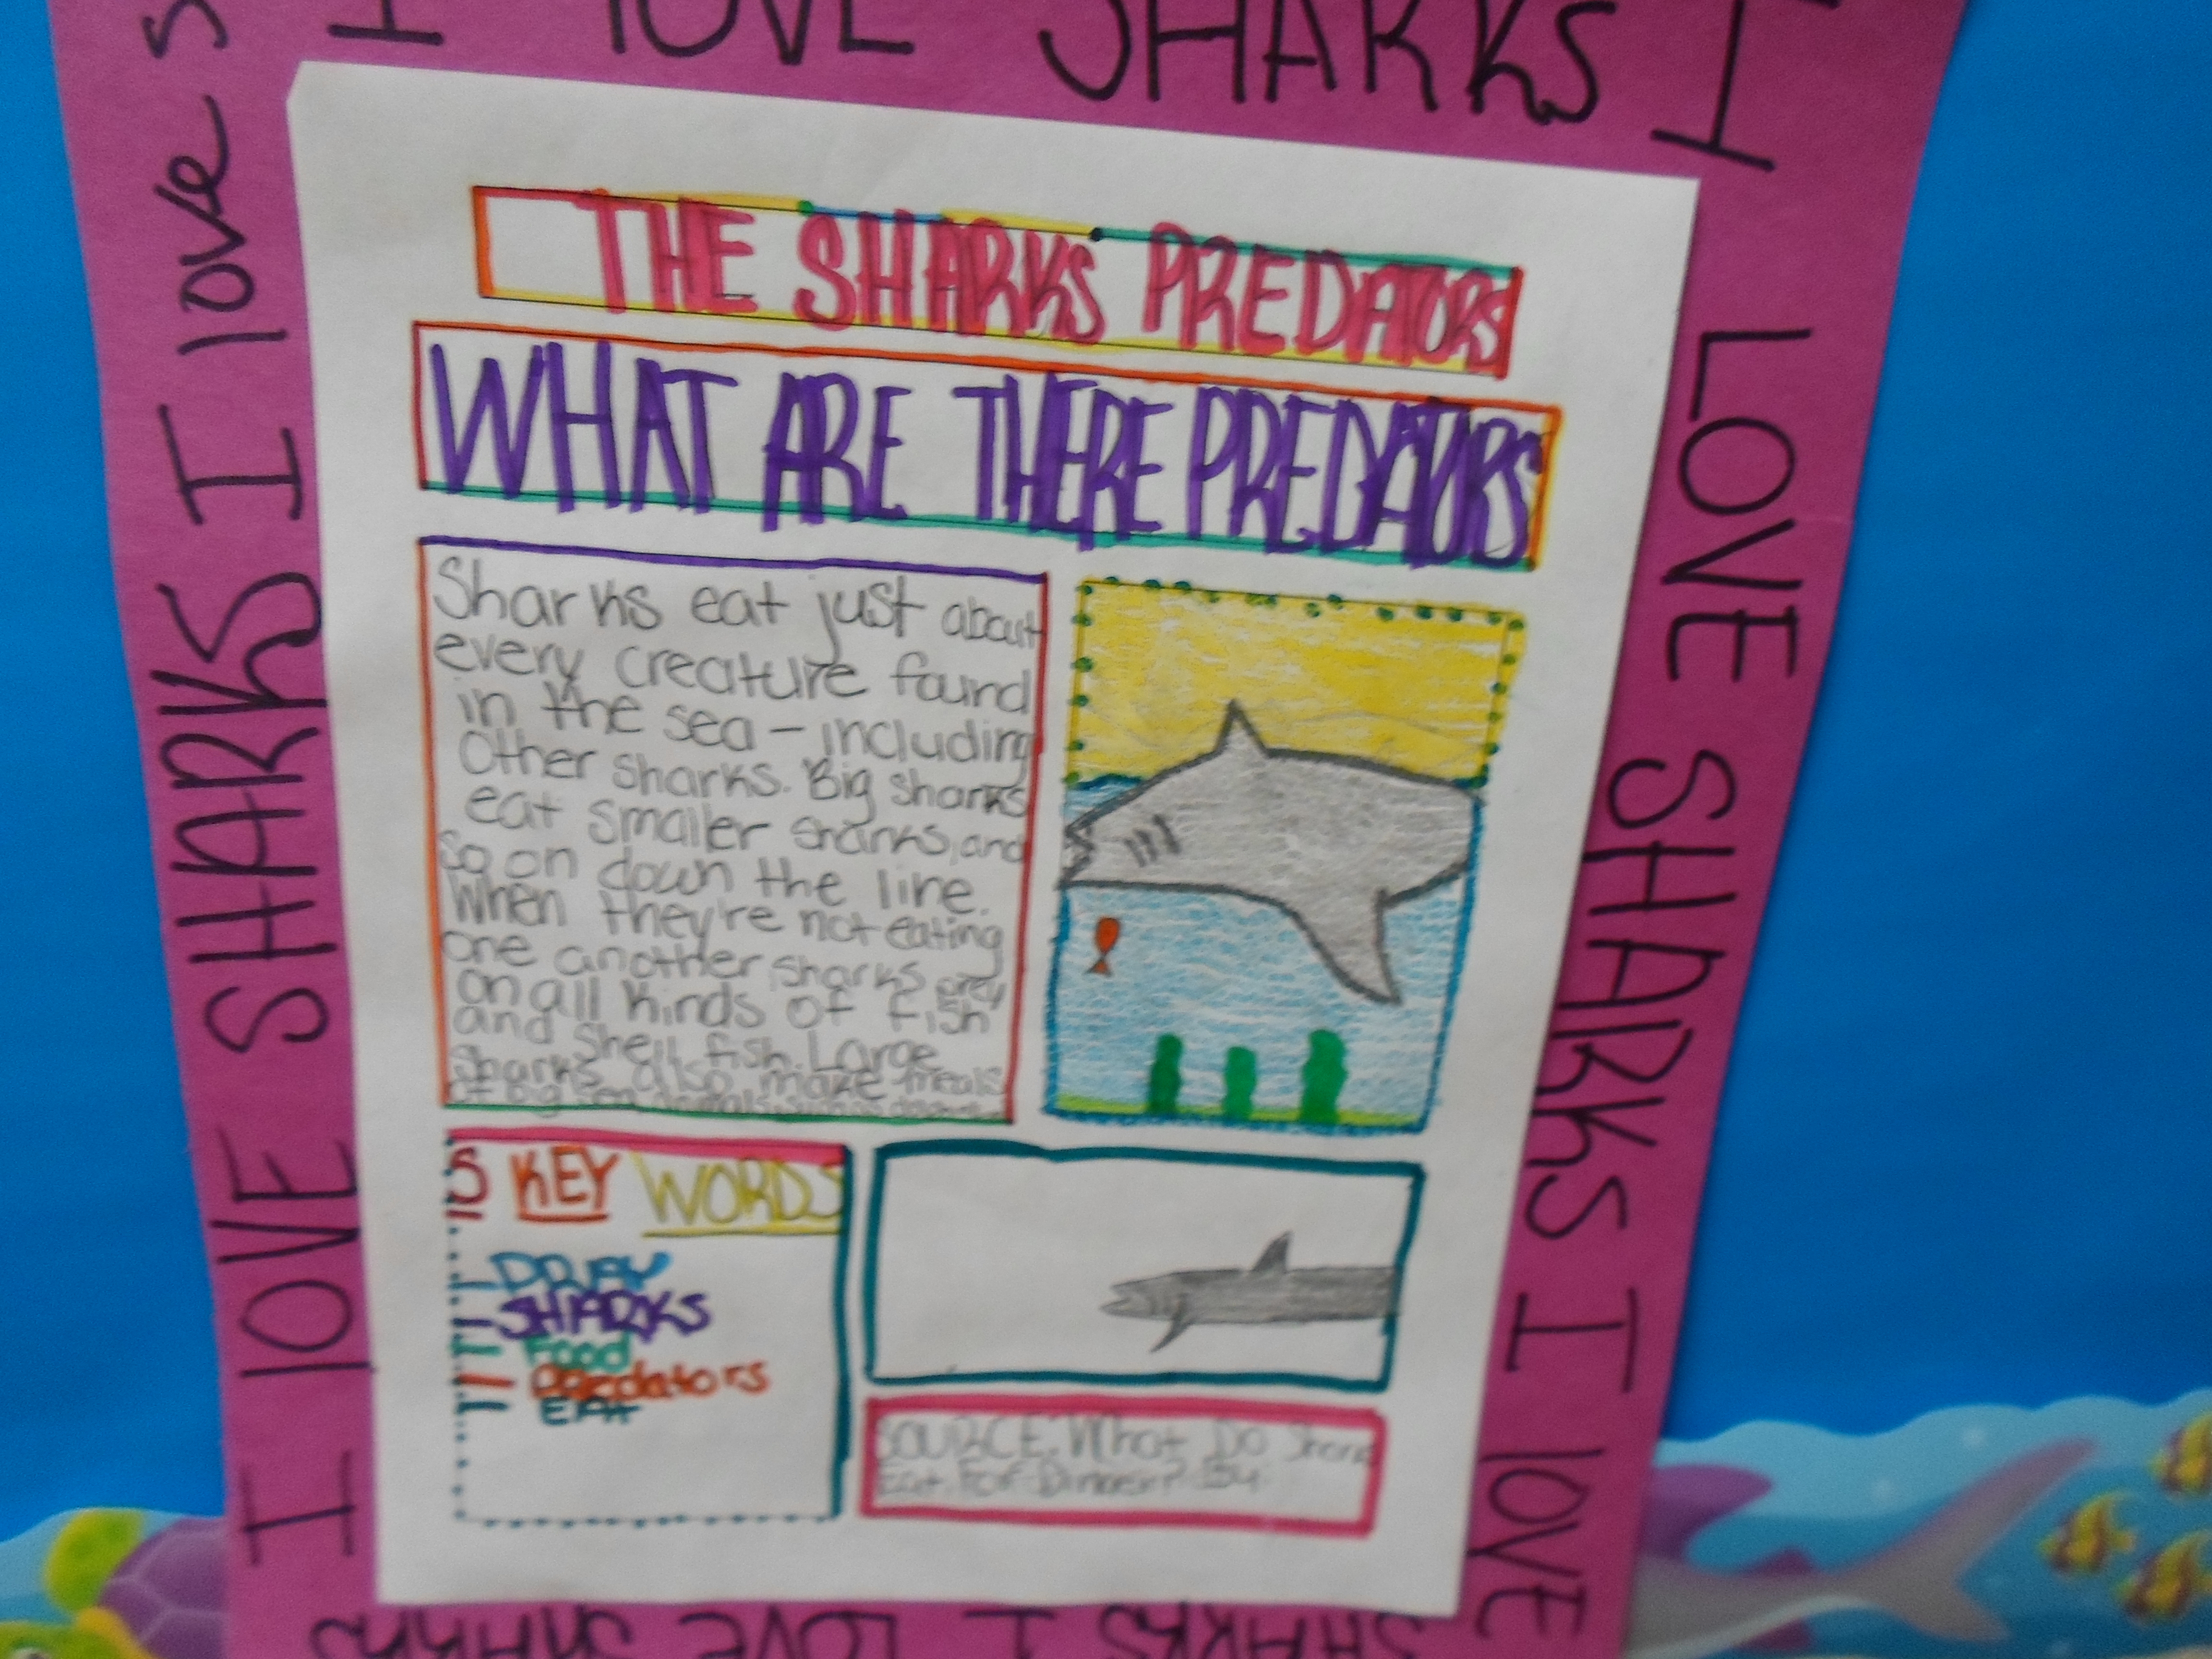 I LOVE SHARKS I
LOVE SHARKS I LOVE
SHARKS I LOVE SHARKS
I LOVE SHARKS I love S
THE SHARKS PREDATORS
WHAT ARE THERE PREDATORS
Sharks eat just about
every creature found
in the sea - including
Other sharks. Big sharks
eat smaller sharks, and
so on down the line.
When they're not eating
one another, sharks prey
on all kinds of fish
and shell fish. Large
Sharks also make meals
of big sea animals, such as
5 KEY WORDS
PREY
SHARKS
Food
Predators
EAt
SOURCE: What Do Sharks
Eat For Dinner? By